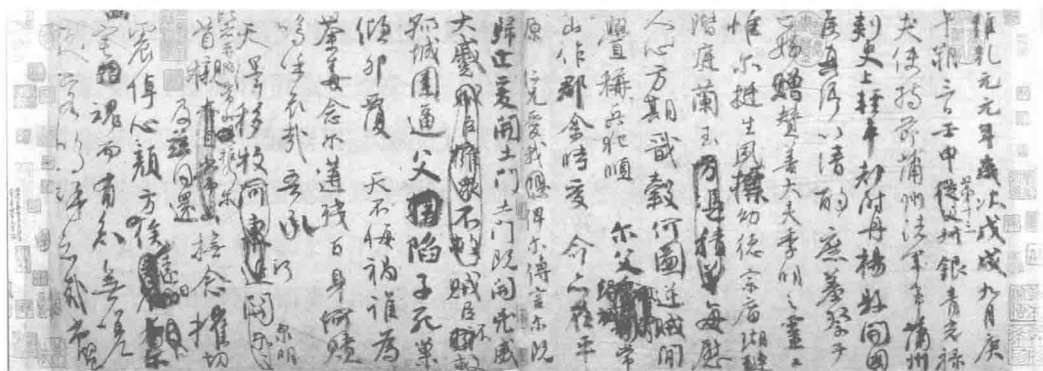 維乾元元年歲次戊戌九月庚
午朔三日壬申第十三叔銀青光祿
夫使持節蒲州諸軍事蒲州
刺史上輕車都尉丹楊縣開國
侯真卿以清酌庶羞祭于
亡姪贈贊善大夫季明之靈曰
惟爾挺生夙標幼德宗廟瑚璉
階庭蘭玉方憑積善每慰
人心方期戩穀何圖逆賊間
釁稱兵犯順爾父竭誠常
山作郡余時受命亦在平
原仁兄愛我俾爾傳言爾既
歸止爰開土門土門既開凶威
大蹙賊臣擁衆不救賊臣不救
孤城圍逼父陷子死巢
傾卵覆天不悔禍誰為
荼毒念爾遘殘百身何贖
嗚乎哀哉吾承
天澤移牧河東近河關泉明
比者再陷常山攜爾
首櫬及茲同還撫念摧切
震悼心顏方俟遠日
魂而有知無嗟
久客嗚呼哀哉尚饗